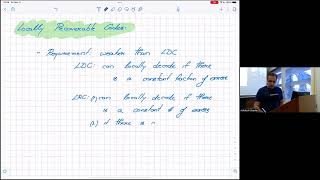 Locally Recoverable Codes:
- Requirement weaker than LDC
LDC: can locally decode if there
is a constant fraction of errors
LRC: 1) can locally decode if there
is a constant # of errors
2) if there is n